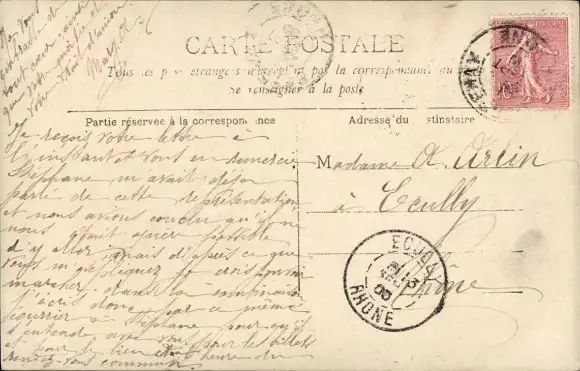 CARTE POSTALE
Tous les pays étrangers n'acceptent pas la correspondance au
se renseigner à la poste
Partie réservée à la correspondance
Adresse du destinataire
Je reçois votre lettre à
l'instant et vous en remercie
m'avait déjà
parlé de cette représentation
et nous avions conclu qu'il ne
nous était guère possible
d'y aller mais d'après ce que
vous m'expliquez je crois pouvoir
marcher dans la combinaison
j'écris donc par ce même
courrier à Stéphane pour qu'il
s'entende avec vous pour les billets
et pour le lieu et heure du
rendez-vous commun
je vous
embrasse
tout
que votre
votre
Madame A. Arlin
à Ecully
Rhône
ECULLY
RHONE